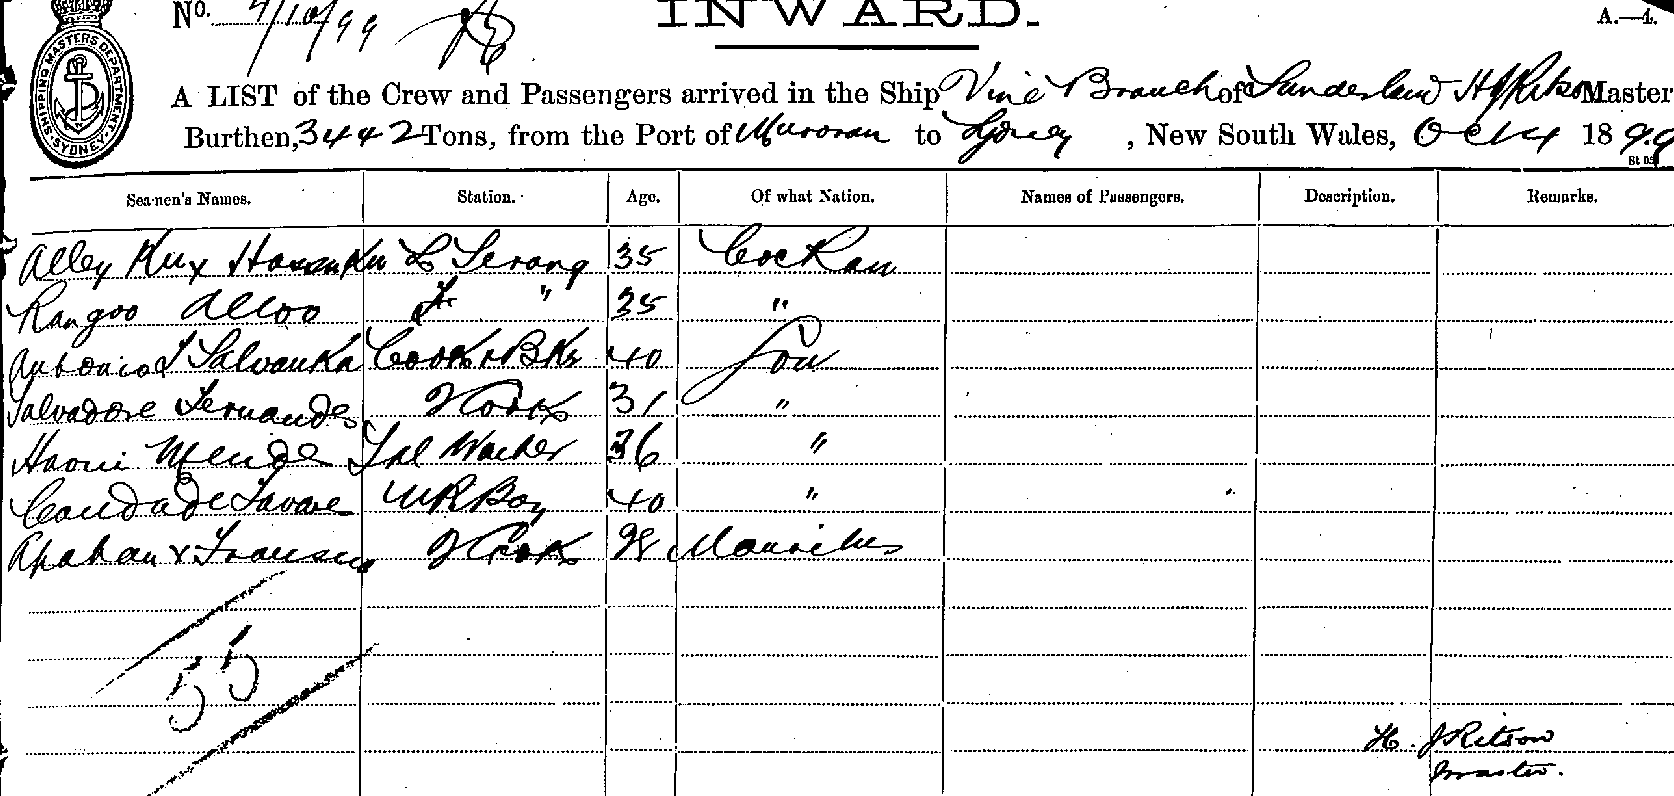 No. 4/10/99
INWARD.
A.—4.
SHIPPING MASTERS DEPARTMENT SYDNEY
A LIST of the Crew and Passengers arrived in the Ship Vine Branch of Sunderland H J Ritson Master
Burthen, 3442 Tons, from the Port of Muroran to Sydney, New South Wales, Oct 4 1899
Seamen's Names. Station. Age. Of what Nation. Names of Passengers. Description. Remarks.
Alley Kux Hasan Ku L Serang 35 Cockan
Rangoo Alloo F " 35 "
Antonio S Salvanka Cook & Bkr 40 Goa
Salvadore Fernandes 2 Cook 31 "
Haoni Mende Wacher 36 "
Candade Tavare MR Boy 40 "
x Fransisco 2 Cook 28 Mauritius
55
H. J Ritson
Master.